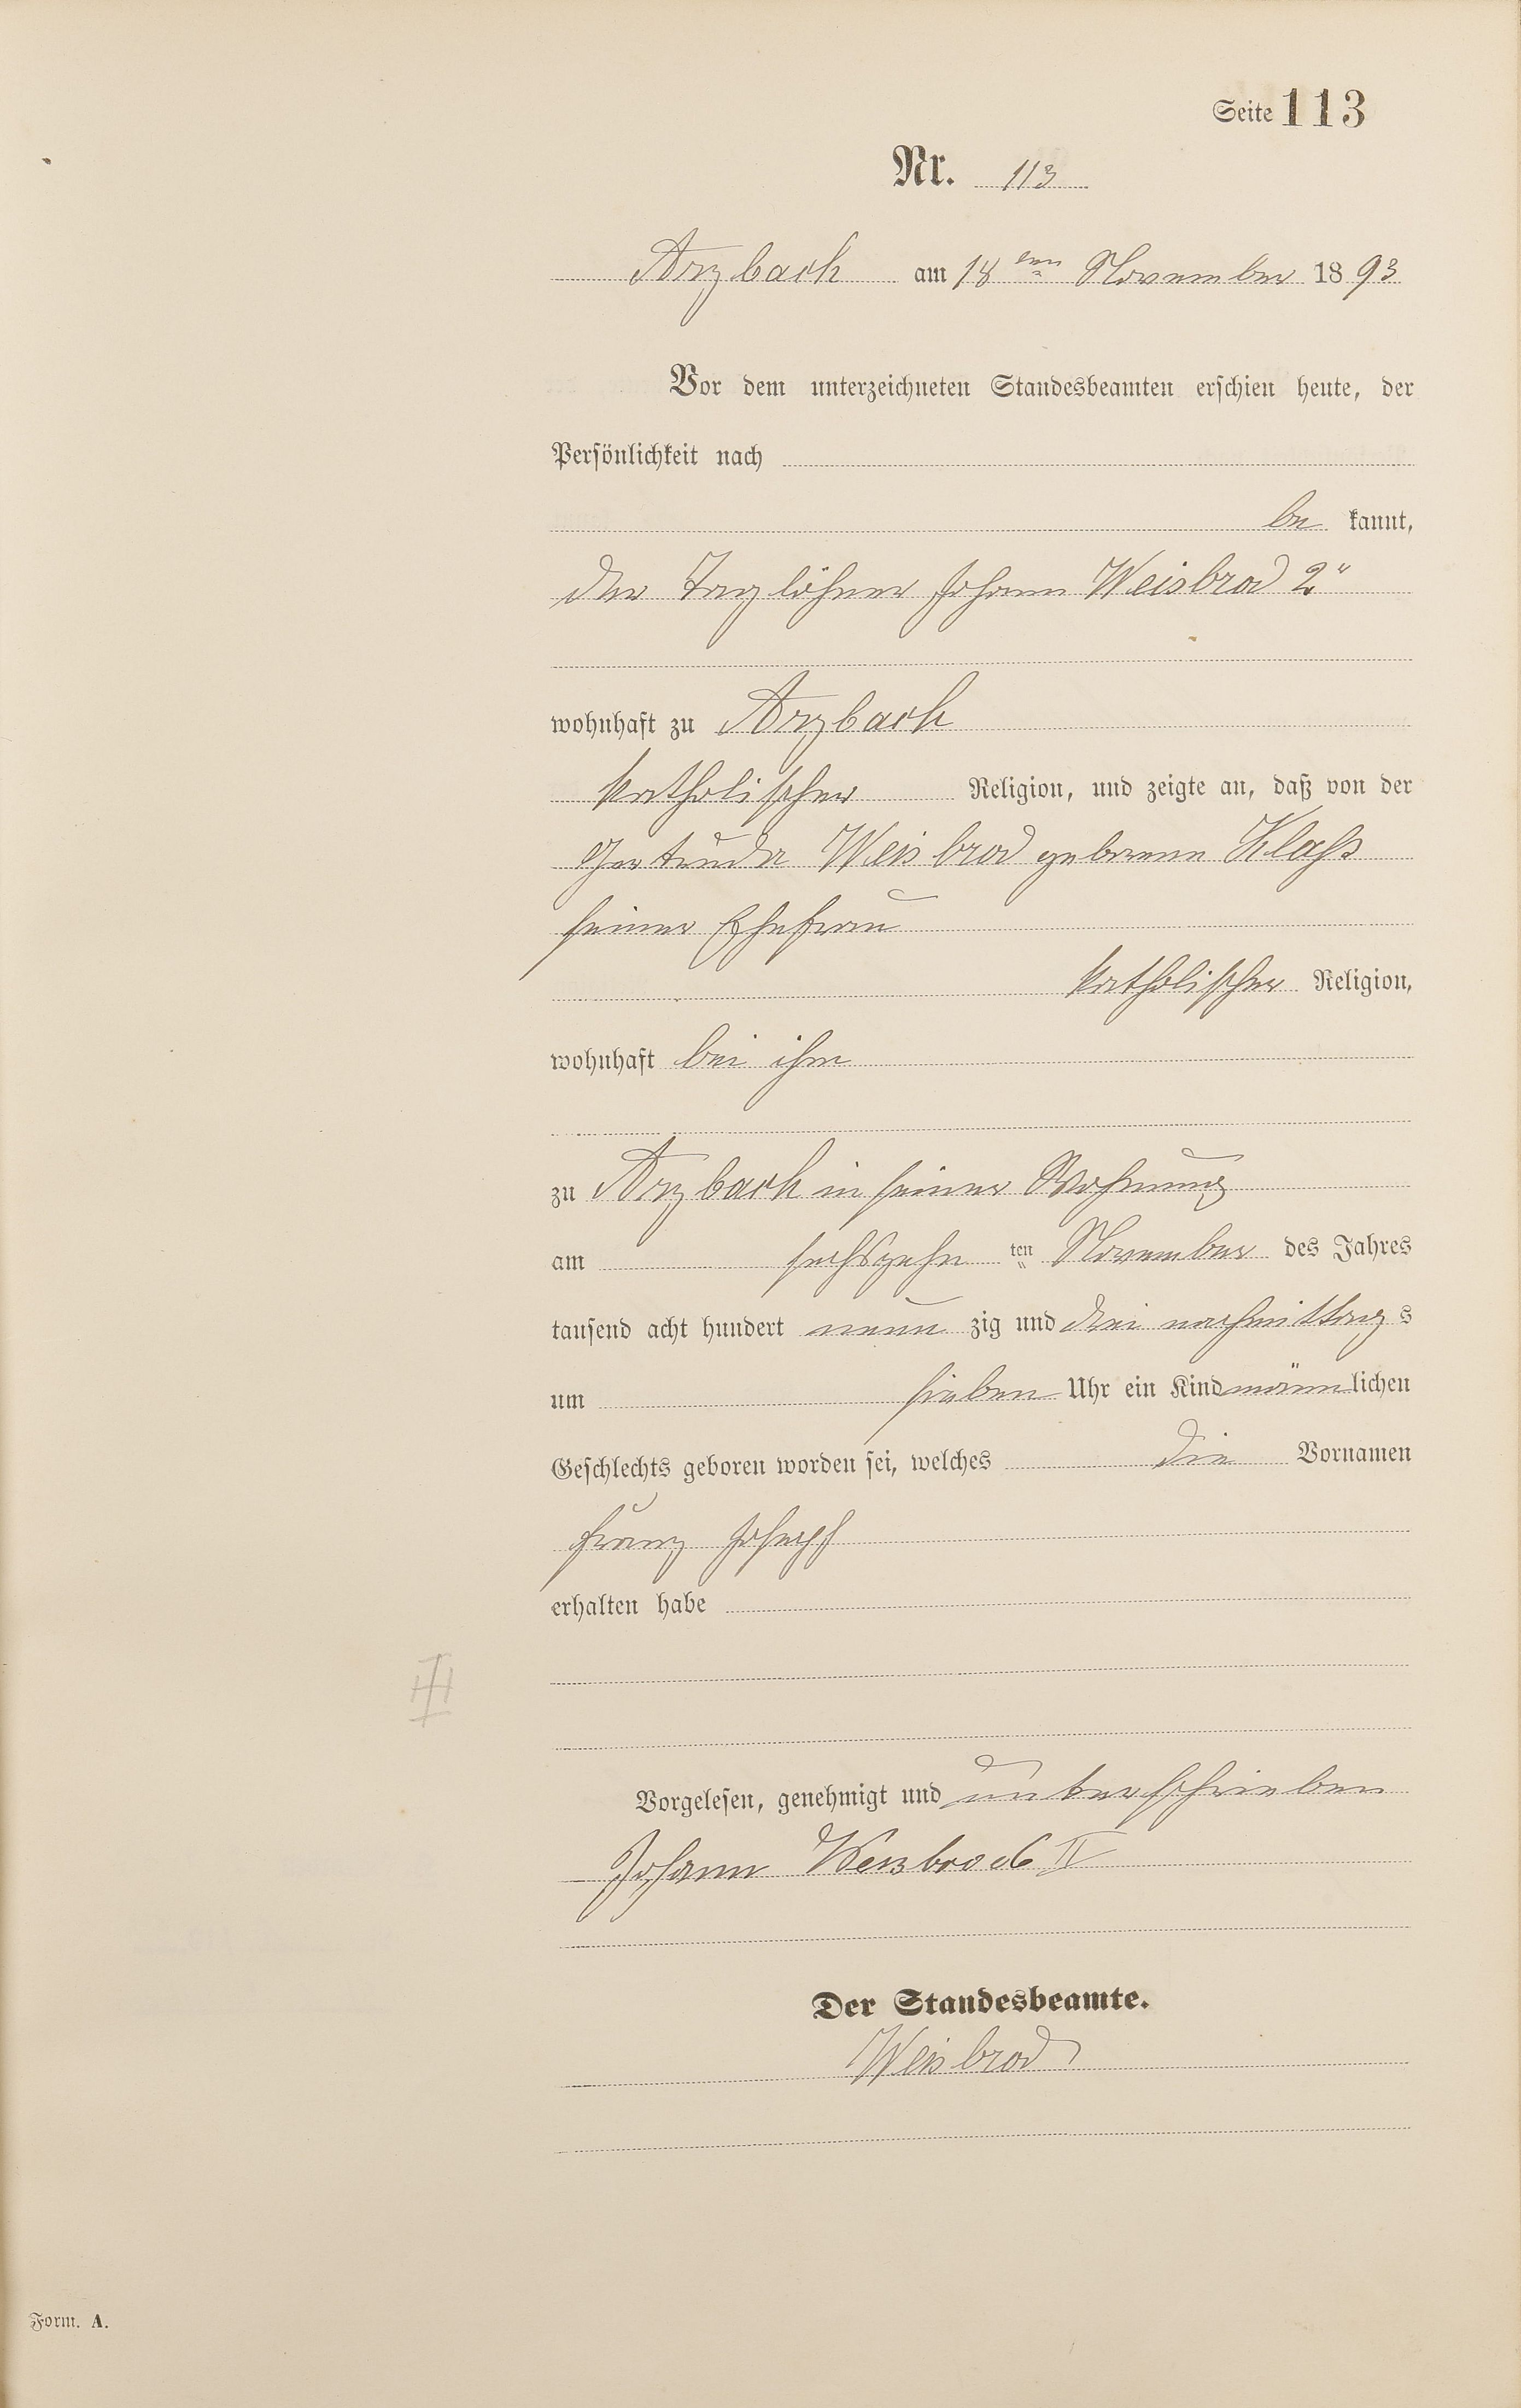 Seite 113
Nr. 113
Arzbach am 18ten November 1893
Vor dem unterzeichneten Standesbeamten erschien heute, der
Persönlichkeit nach
be kannt,
der Taglöhner Johann Weisbrod 2"
wohnhaft zu Arzbach
katholischer Religion, und zeigte an, daß von der
Gertrude Weisbrod geborene Klaß
seiner Ehefrau
katholischer Religion,
wohnhaft bei ihm
zu Arzbach in seiner Wohnung
am sechszehn ten November des Jahres
tausend acht hundert neun zig und drei nachmittags
um sieben Uhr ein Kind männlichen
Geschlechts geboren worden sei, welches die Vornamen
Franz Joseph
erhalten habe
Vorgelesen, genehmigt und unterschrieben
Johann Weisbrod II
Der Standesbeamte.
Weisbrod
Form. A.